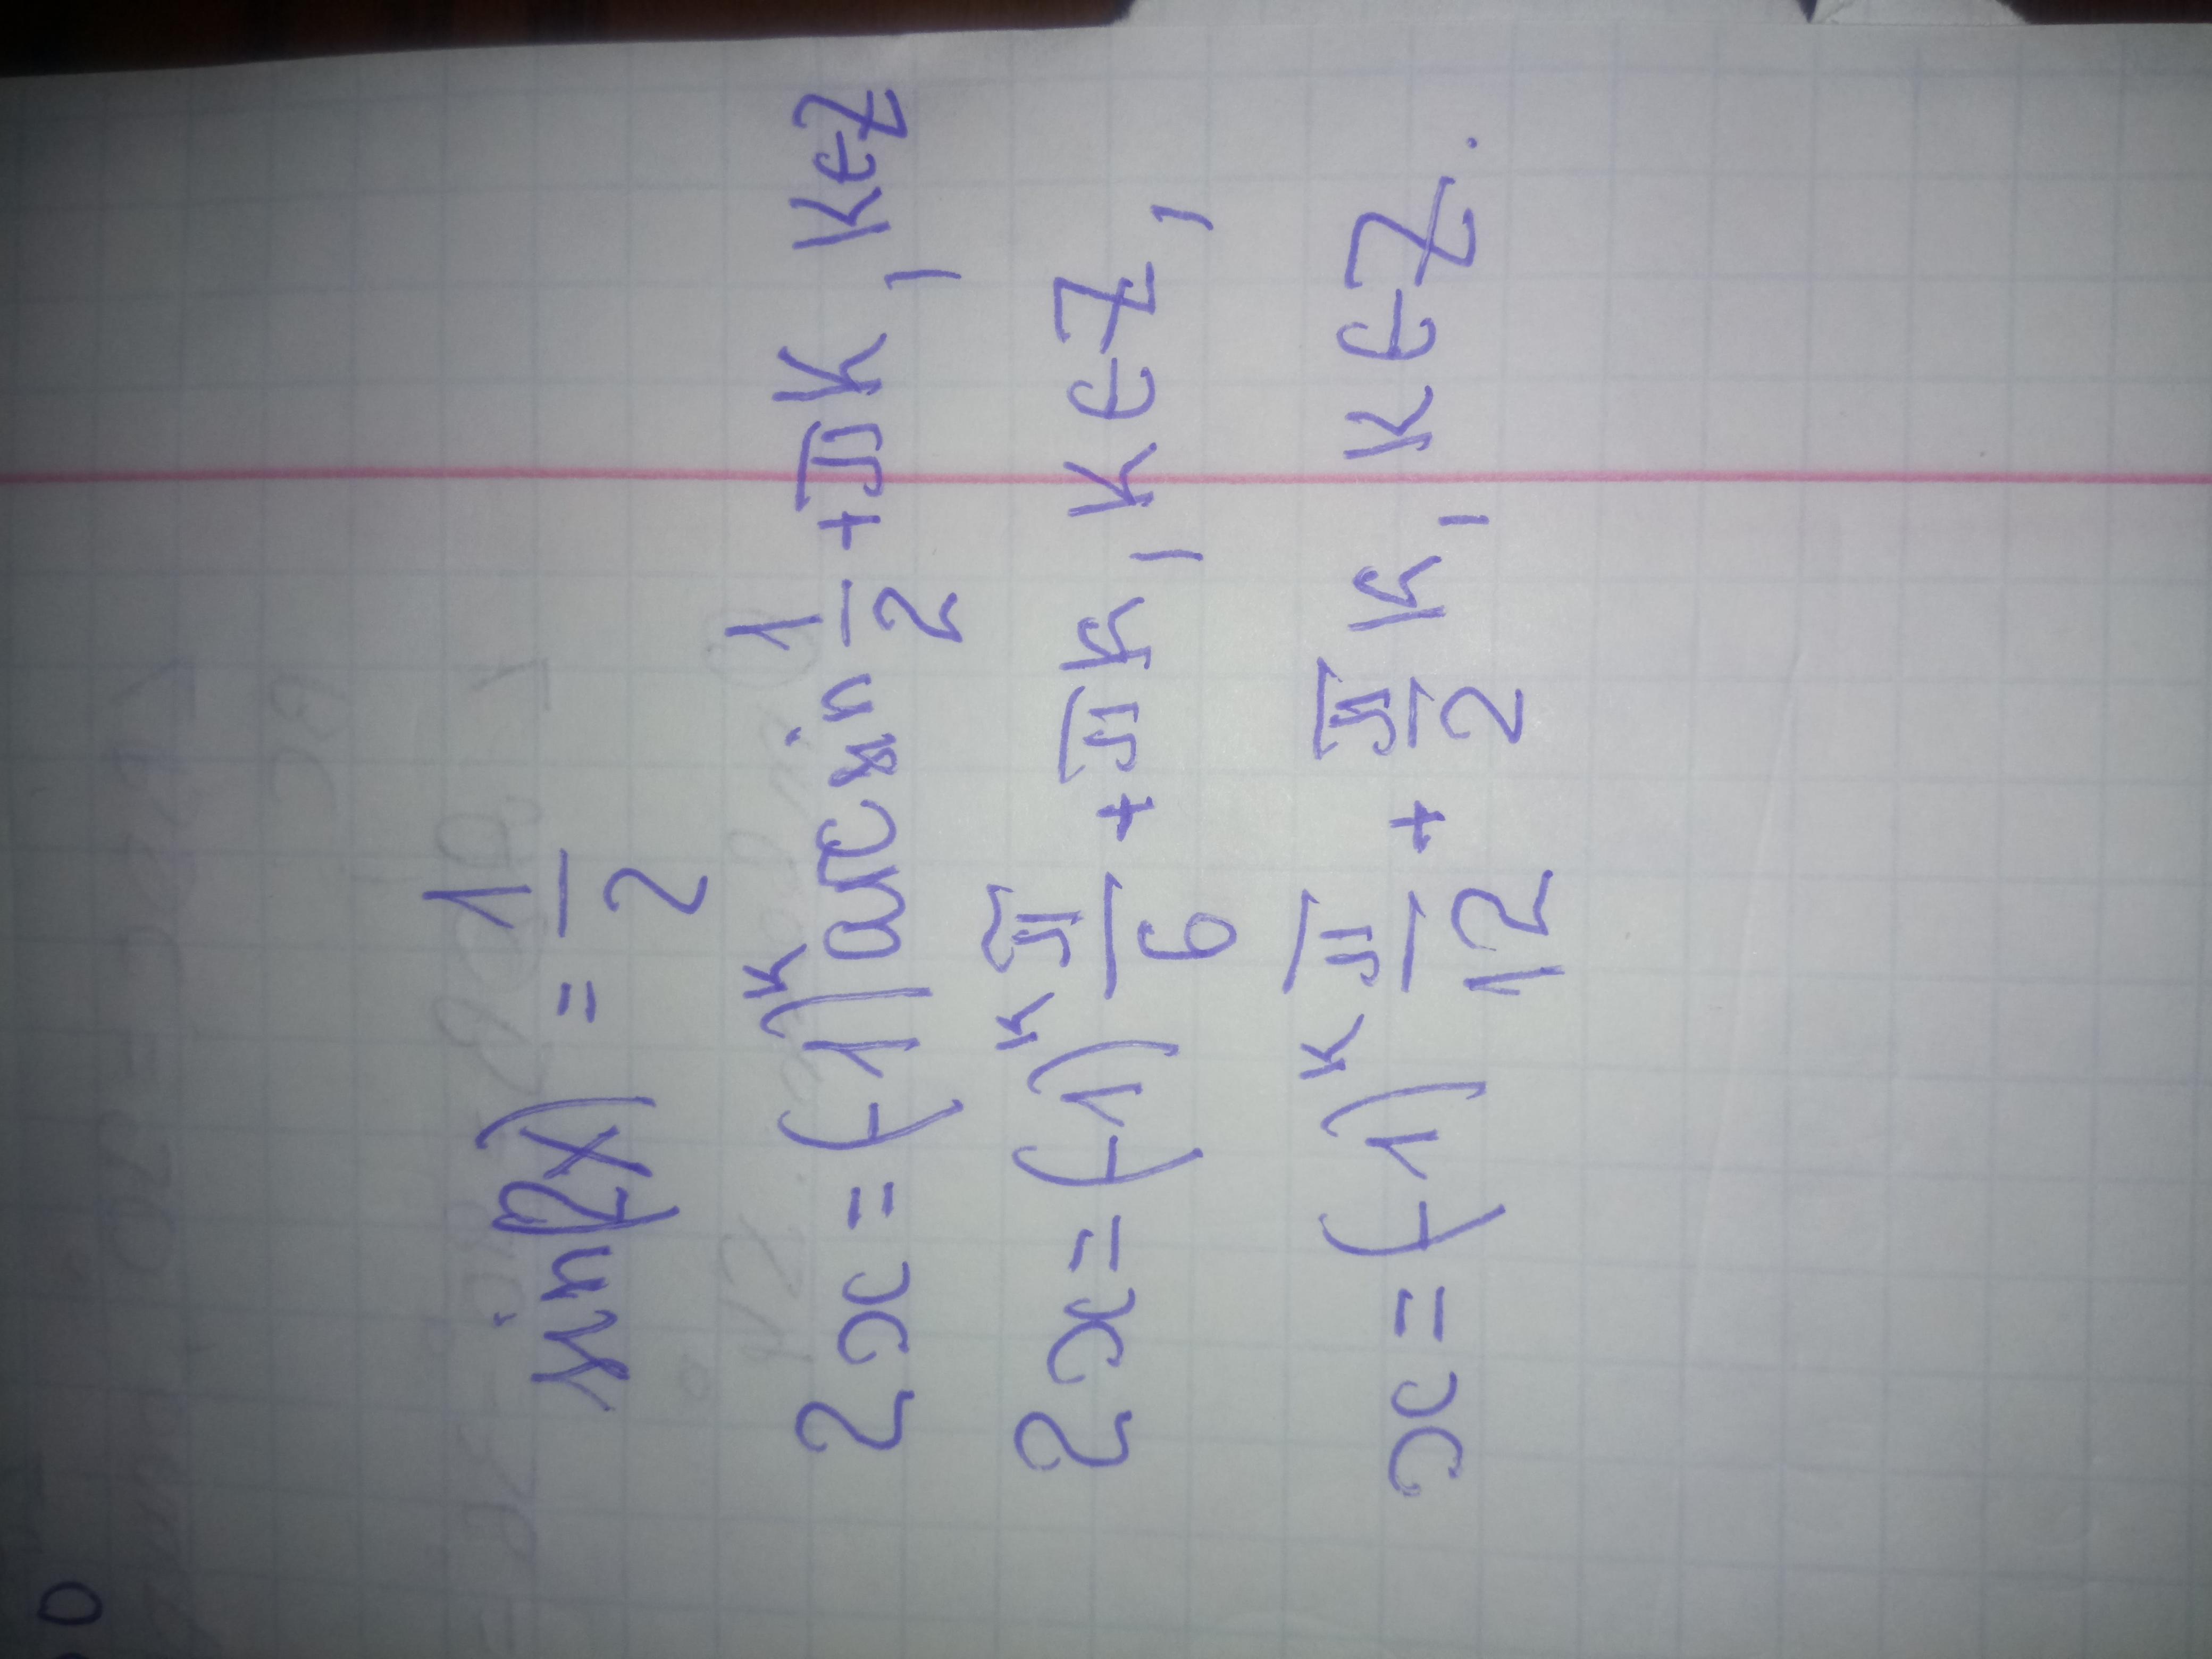 sin(2x) = 1/2
2x = (-1)^k arcsin 1/2 + πk, k∈Z
2x = (-1)^k π/6 + πk, k∈Z,
x = (-1)^k π/12 + π/2 k, k∈Z.